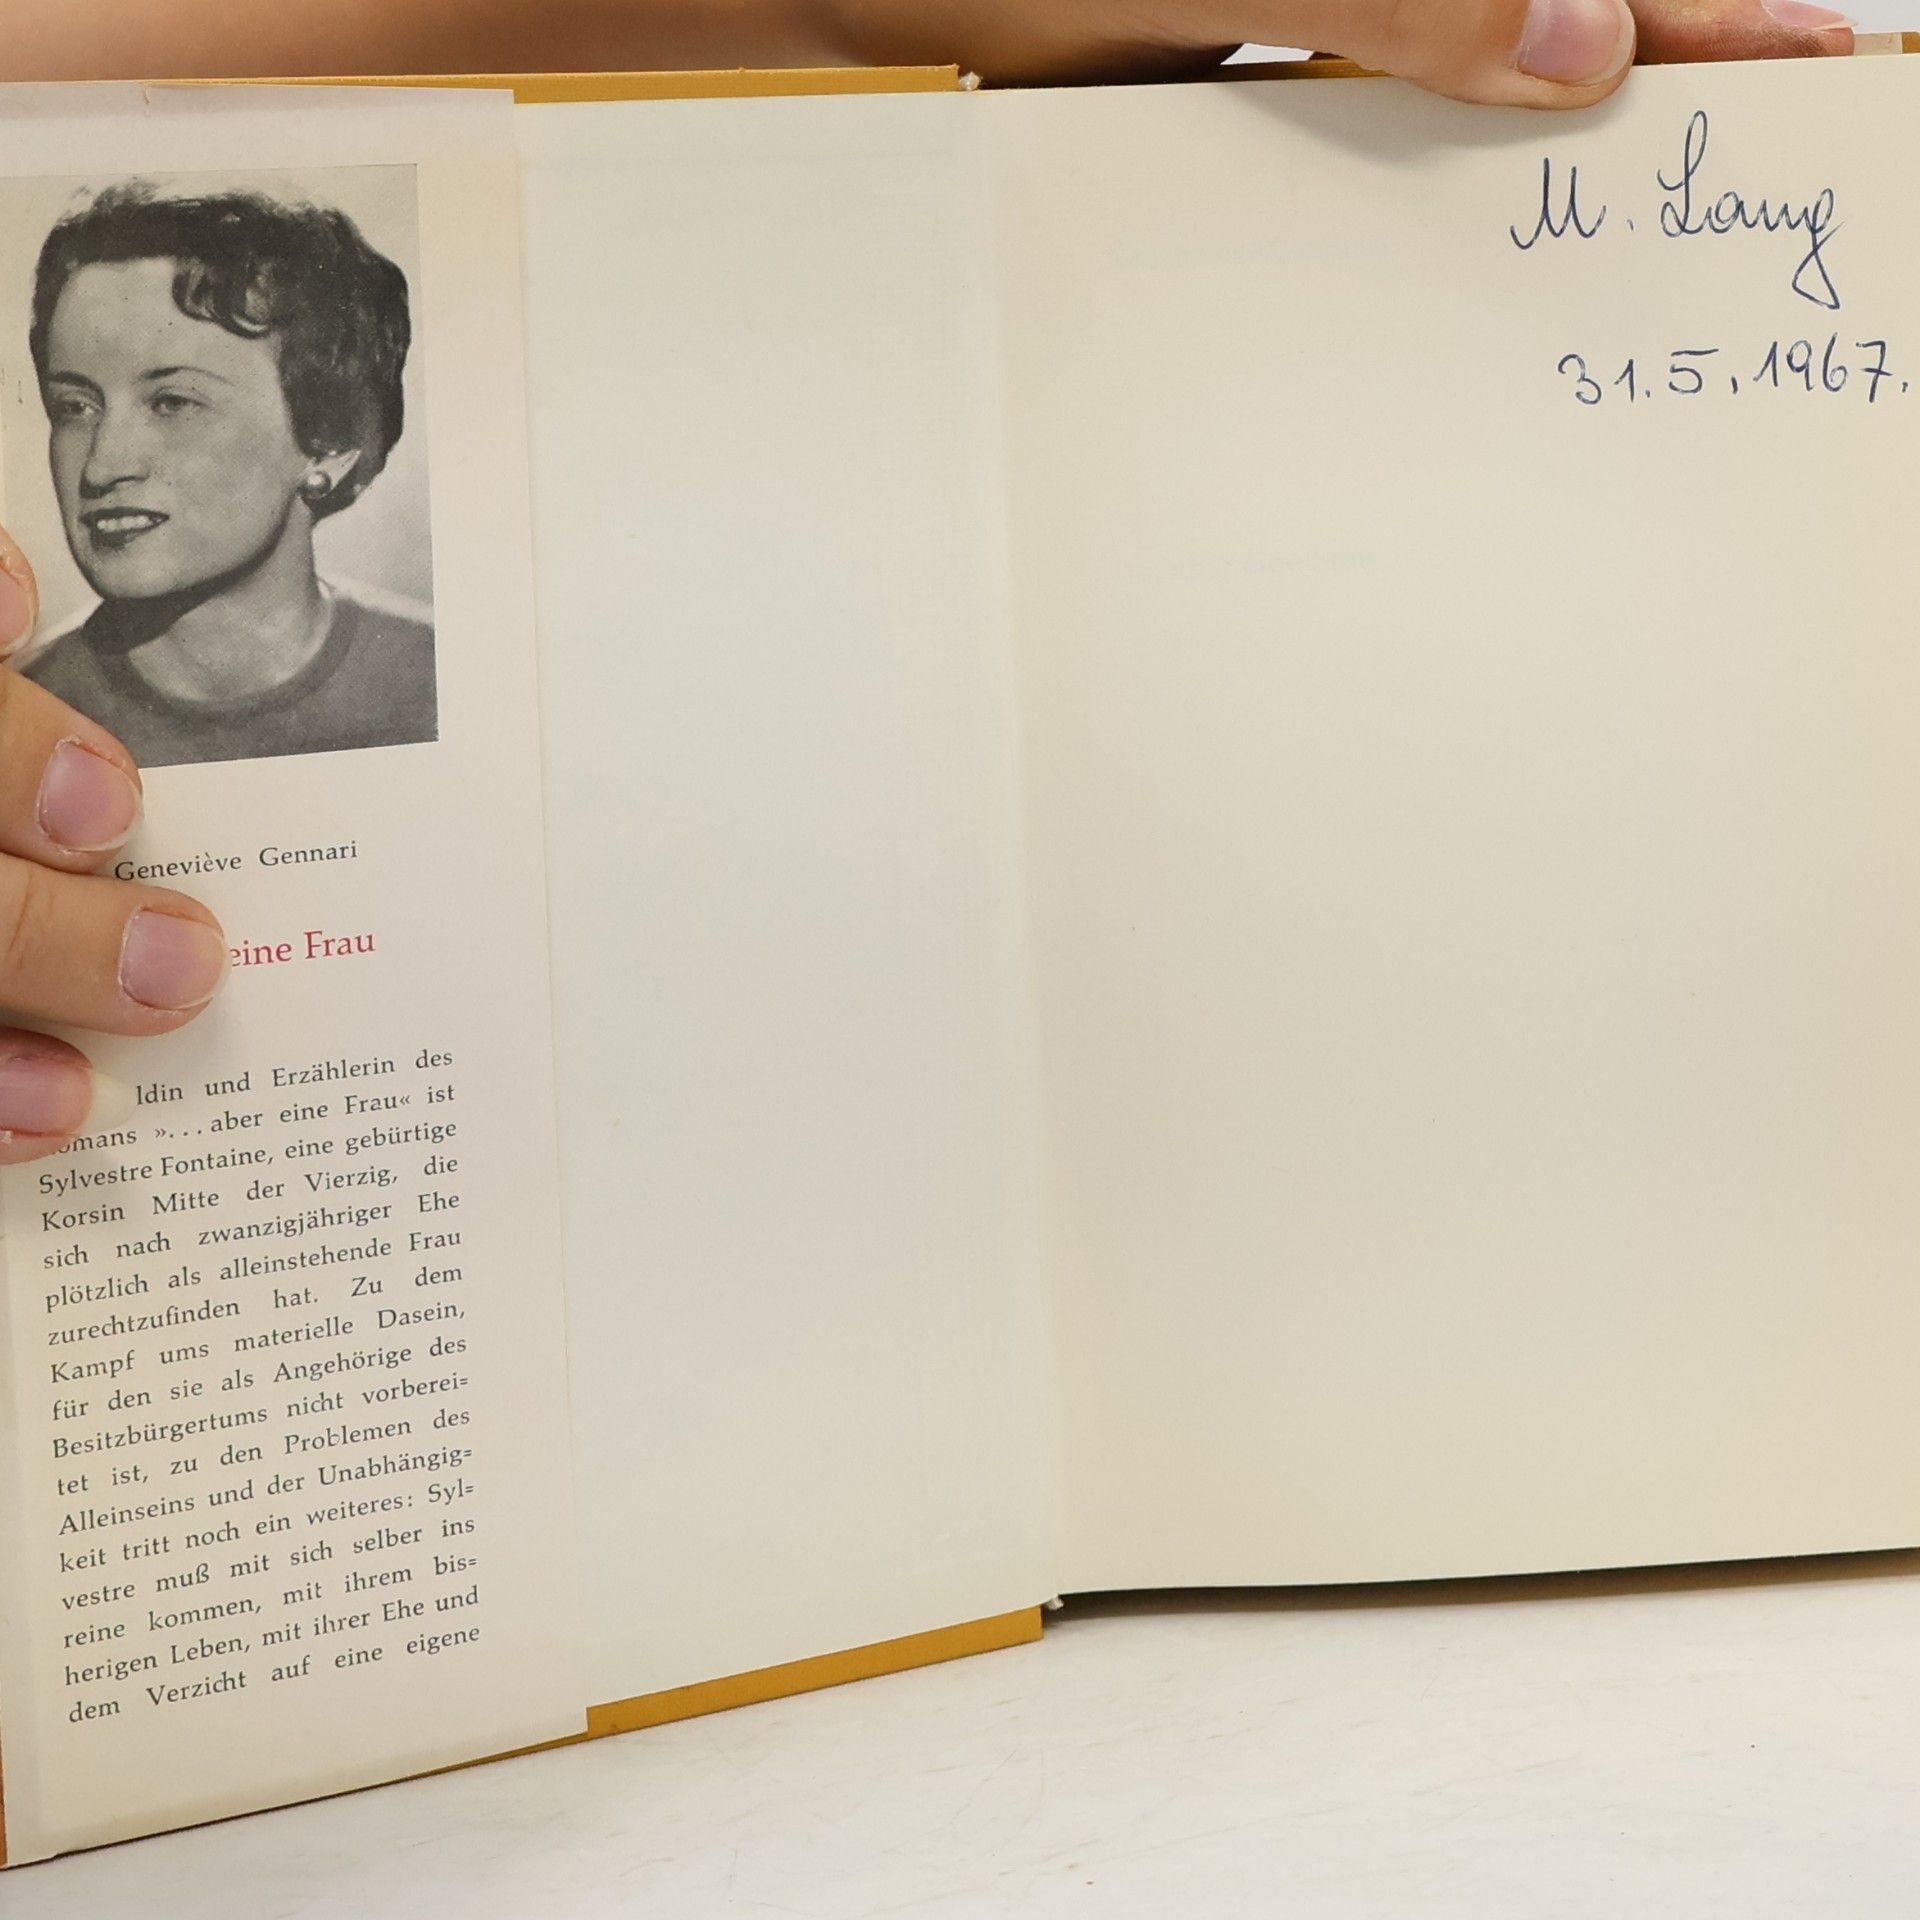 Geneviève Gennari
eine Frau
ldin und Erzählerin des
omans »... aber eine Frau« ist
Sylvestre Fontaine, eine gebürtige
Korsin Mitte der Vierzig, die
sich nach zwanzigjähriger Ehe
plötzlich als alleinstehende Frau
zurechtzufinden hat. Zu dem
Kampf ums materielle Dasein,
für den sie als Angehörige des
Besitzbürgertums nicht vorberei=
tet ist, zu den Problemen des
Alleinseins und der Unabhängig=
keit tritt noch ein weiteres: Syl=
vestre muß mit sich selber ins
reine kommen, mit ihrem bis=
herigen Leben, mit ihrer Ehe und
dem Verzicht auf eine eigene
M. Lang
31.5.1967.